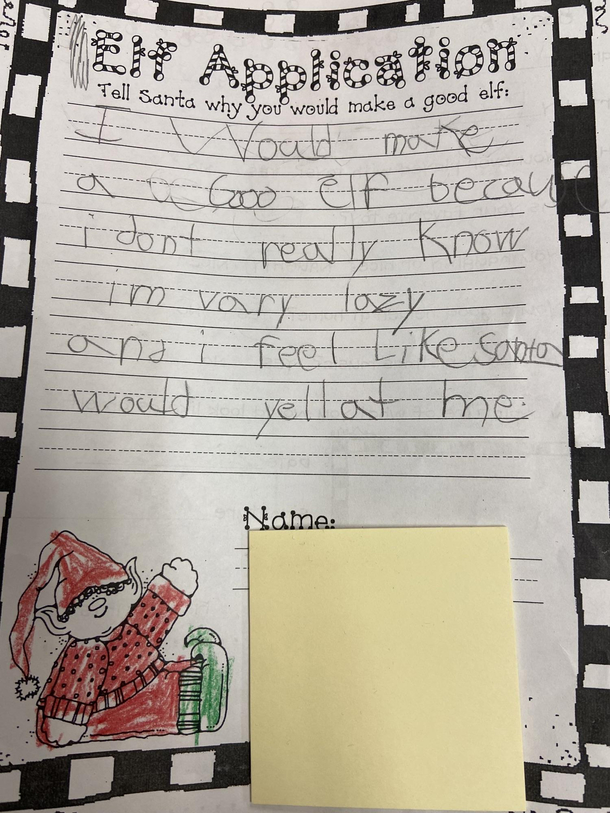 Elf Application
Tell Santa why you would make a good elf:
I Would make
a Goo elf becau
i dont really know
im vary lazy
and i feel Like Santa
would yell at me
Name: